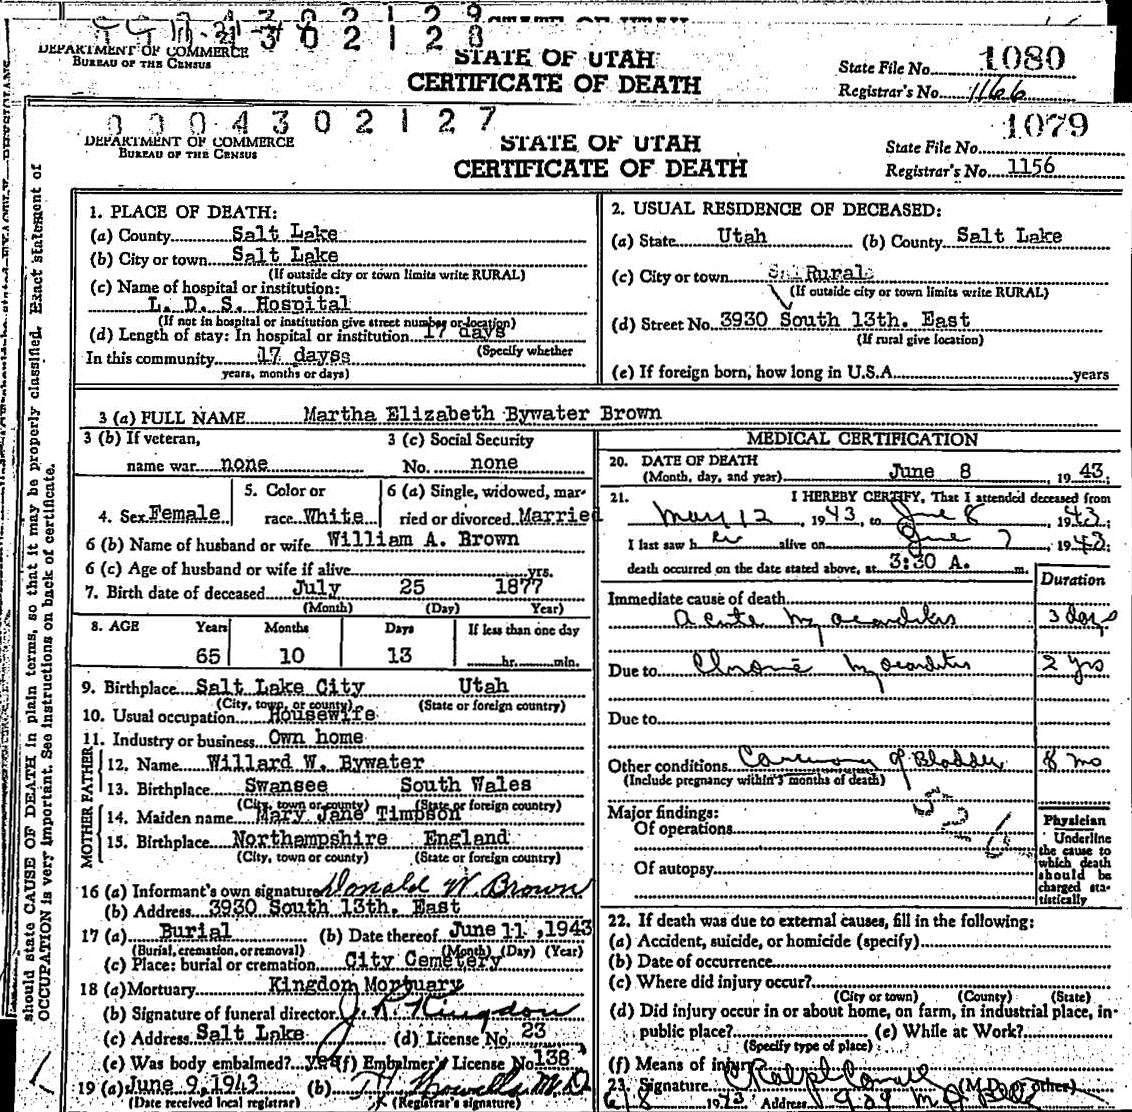 0004302128
DEPARTMENT OF COMMERCE
BUREAU OF THE CENSUS
STATE OF UTAH
CERTIFICATE OF DEATH
State File No. 1080
Registrar's No. 1166
0004302127
DEPARTMENT OF COMMERCE
BUREAU OF THE CENSUS
STATE OF UTAH
CERTIFICATE OF DEATH
1079
State File No.
Registrar's No. 1156
should state CAUSE OF DEATH in plain terms, so that it may be properly classified. Exact statement of
OCCUPATION is very important. See instructions on back of certificate.
1. PLACE OF DEATH:
(a) County Salt Lake
(b) City or town Salt Lake
(If outside city or town limits write RURAL)
(c) Name of hospital or institution:
L. D. S. Hospital
(If not in hospital or institution give street number or location)
(d) Length of stay: In hospital or institution 17 days
(Specify whether
In this community 17 dayss
years, months or days)
2. USUAL RESIDENCE OF DECEASED:
(a) State Utah (b) County Salt Lake
(c) City or town Rural
(If outside city or town limits write RURAL)
(d) Street No. 3930 South 13th. East
(If rural give location)
(e) If foreign born, how long in U.S.A. years
3 (a) FULL NAME Martha Elizabeth Bywater Brown
3 (b) If veteran,
name war none
3 (c) Social Security
No. none
4. Sex Female
5. Color or
race White
6 (a) Single, widowed, mar-
ried or divorced Married
6 (b) Name of husband or wife William A. Brown
6 (c) Age of husband or wife if alive yrs.
7. Birth date of deceased July 25 1877
(Month) (Day) Year)
8. AGE Years Months Days If less than one day
65 10 13 hr. min.
9. Birthplace Salt Lake City Utah
(City, town, or county) (State or foreign country)
10. Usual occupation Housewife
11. Industry or business Own home
FATHER
12. Name Willard W. Bywater
13. Birthplace Swansee South Wales
(City, town or county) (State or foreign country)
MOTHER
14. Maiden name Mary Jane Timpson
15. Birthplace Northampshire England
(City, town or county) (State or foreign country)
16 (a) Informant's own signature Donald W Brown
(b) Address 3930 South 13th. East
17 (a) Burial (b) Date thereof June 11, 1943
(Burial, cremation, or removal) (Month) (Day) (Year)
(c) Place: burial or cremation City Cemetery
18 (a) Mortuary Kingdom Mortuary
(b) Signature of funeral director J. R. Kingdon
(c) Address Salt Lake (d) License No. 23
(e) Was body embalmed? yes (f) Embalmer's License No. 138
19 (a) June 9, 1943 (b) M.D.
(Date received local registrar) (Registrar's signature)
MEDICAL CERTIFICATION
20. DATE OF DEATH
(Month, day, and year) June 8, 1943;
21. I HEREBY CERTIFY, That I attended deceased from
May 12, 1943, to June 8, 1943;
I last saw her alive on June 7, 1943;
death occurred on the date stated above, at 3:30 A. m.
Duration
Immediate cause of death
Acute myocarditis 3 days
Due to Chronic myocarditis 2 yrs
Due to
Other conditions of Bladder 8 mo
(Include pregnancy within 3 months of death)
526
Major findings:
Of operations
Of autopsy
Physician
Underline
the cause to
which death
should be
charged sta-
tistically
22. If death was due to external causes, fill in the following:
(a) Accident, suicide, or homicide (specify)
(b) Date of occurrence
(c) Where did injury occur?
(City or town) (County) (State)
(d) Did injury occur in or about home, on farm, in industrial place, in
public place? (e) While at Work?
(Specify type of place)
(f) Means of injury
23. Signature Ralph (M.D. or other)
6/8 1943 Address